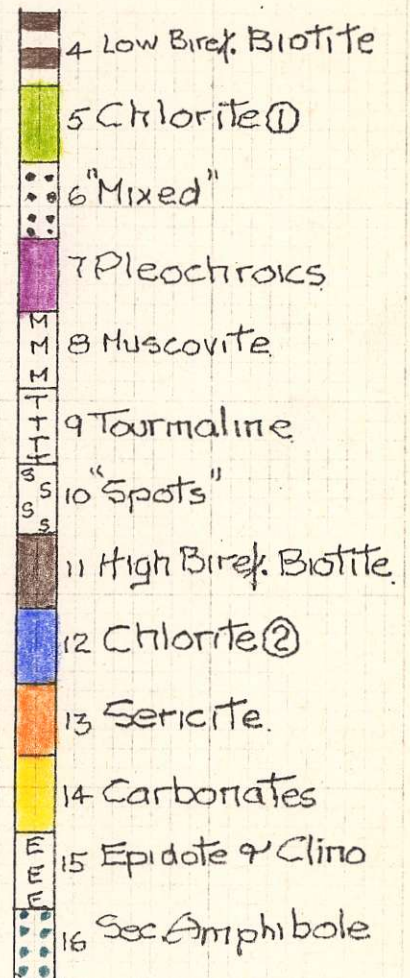 4 Low Biref. Biotite
5 Chlorite ①
6 "Mixed"
7 Pleochroics
M
M
M
8 Muscovite
T
T
T
T
9 Tourmaline
S
S
S
S
10 "Spots"
11 High Biref. Biotite.
12 Chlorite ②
13 Sericite.
14 Carbonates
E
E
E
15 Epidote & Clino
16 Sec. Amphibole